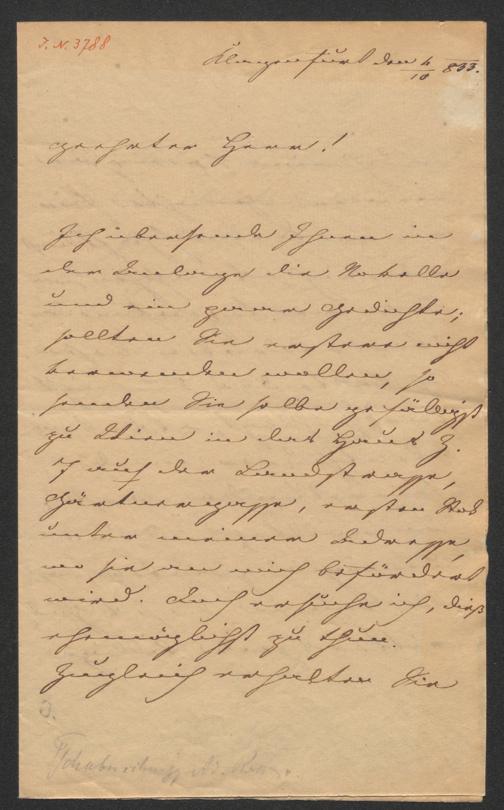 J. N. 3788
Klagenfurt den 4/10 833.
geehrter Herr!
Ich übersende Ihnen in
der Anlage die Novelle
und ein paar Gedichte;
sollten Sie erstere nicht
verwenden wollen, so
senden Sie selbe gefälligst
zu Wien in das Haus Z.
7 auf der Landstrasse,
Gärtnergasse, ersten Stok
unter meiner Adresse,
wo sie an mich befördert
wird. Doch ersuche ich, dieß
ehemöglichst zu thun.
Zugleich erhalten Sie